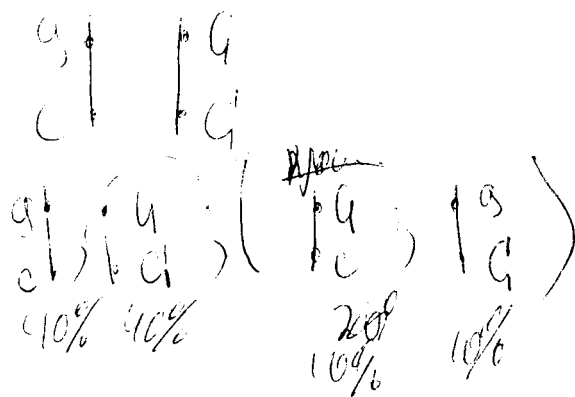 g G
c C
g G G g
c C c C
40% 40% 10% 10%